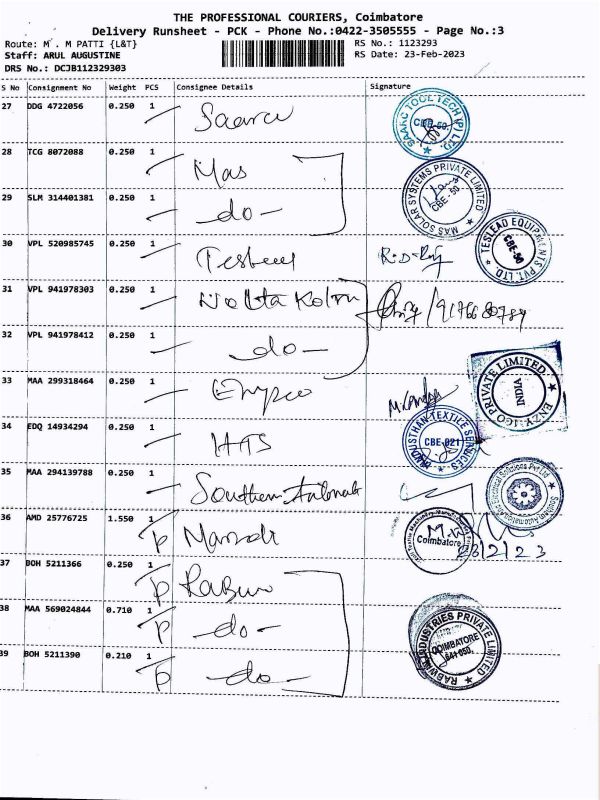 THE PROFESSIONAL COURIERS, Coimbatore
Delivery Runsheet - PCK - Phone No.:0422-3505555 - Page No.:3
Route: M . M PATTI {L&T} RS No.: 1123293
Staff: ARUL AUGUSTINE RS Date: 23-Feb-2023
DRS No.: DCJB112329303
S No Consignment No Weight PCS Consignee Details Signature
27 DDG 4722056 0.250 1 SAARC TOOL TECH (P) LTD.
28 TCG 8072088 0.250 1 Mas MAS SOLAR SYSTEMS PRIVATE LIMITED CBE-50
29 SLM 314401381 0.250 1 -do-
30 VPL 520985745 0.250 1 TESLEAD EQUIPMENTS PVT. LTD CBE-50
31 VPL 941978303 0.250 1
32 VPL 941978412 0.250 1 -do-
33 MAA 299318464 0.250 1 PRIVATE LIMITED. INDIA
34 EDQ 14934294 0.250 1 HTS HINDUSTHAN TEXTILE SERVICES CBE-021
35 MAA 294139788 0.250 1 Southern
36 AMD 25776725 1.550 1 P Coimbatore 23/2/23
37 BOH 5211366 0.250 1 P
38 MAA 569024844 0.710 1 P -do- INDUSTRIES PRIVATE LIMITED COIMBATORE
39 BOH 5211390 0.210 1 P -do-